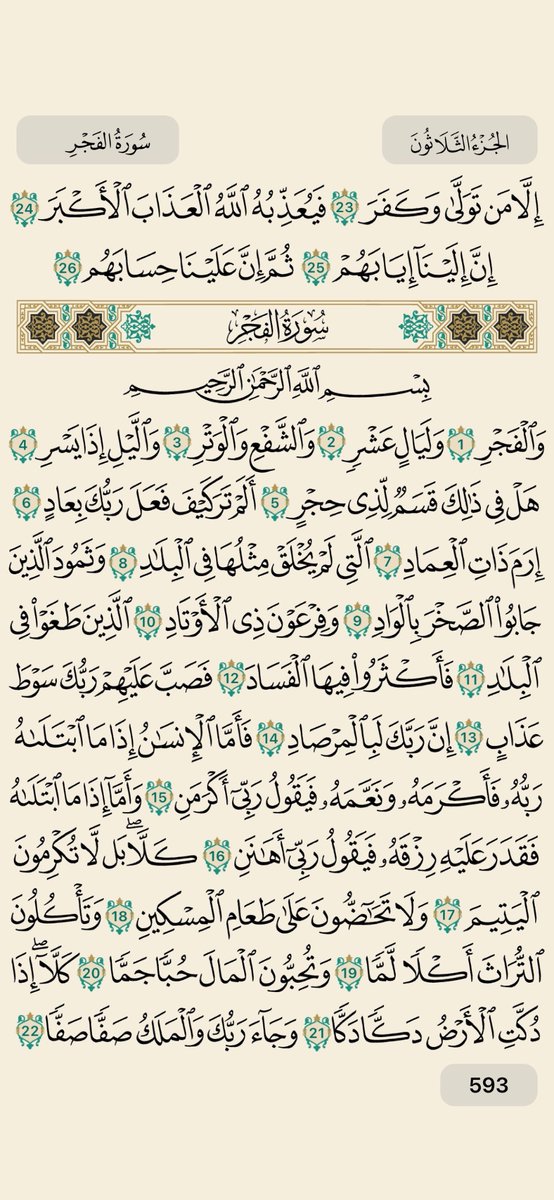 الجُزْءُ الثَّلَاثُونَ
سُورَةُ الفَجْرِ
إِلَّا مَن تَوَلَّىٰ وَكَفَرَ 23 فَيُعَذِّبُهُ ٱللَّهُ ٱلْعَذَابَ ٱلْأَكْبَرَ 24
إِنَّ إِلَيْنَآ إِيَابَهُمْ 25 ثُمَّ إِنَّ عَلَيْنَا حِسَابَهُم 26
سُورَةُ الفَجْرِ
بِسْمِ ٱللَّهِ ٱلرَّحْمَٰنِ ٱلرَّحِيمِ
وَٱلْفَجْرِ 1 وَلَيَالٍ عَشْرٍ 2 وَٱلشَّفْعِ وَٱلْوَتْرِ 3 وَٱلَّيْلِ إِذَا يَسْرِ 4
هَلْ فِى ذَٰلِكَ قَسَمٌ لِّذِى حِجْرٍ 5 أَلَمْ تَرَ كَيْفَ فَعَلَ رَبُّكَ بِعَادٍ 6
إِرَمَ ذَاتِ ٱلْعِمَادِ 7 ٱلَّتِى لَمْ يُخْلَقْ مِثْلُهَا فِى ٱلْبِلَٰدِ 8 وَثَمُودَ ٱلَّذِينَ
جَابُوا۟ ٱلصَّخْرَ بِٱلْوَادِ 9 وَفِرْعَوْنَ ذِى ٱلْأَوْتَادِ 10 ٱلَّذِينَ طَغَوْا۟ فِى
ٱلْبِلَٰدِ 11 فَأَكْثَرُوا۟ فِيهَا ٱلْفَسَادَ 12 فَصَبَّ عَلَيْهِمْ رَبُّكَ سَوْطَ
عَذَابٍ 13 إِنَّ رَبَّكَ لَبِٱلْمِرْصَادِ 14 فَأَمَّا ٱلْإِنسَٰنُ إِذَا مَا ٱبْتَلَىٰهُ
رَبُّهُۥ فَأَكْرَمَهُۥ وَنَعَّمَهُۥ فَيَقُولُ رَبِّىٓ أَكْرَمَنِ 15 وَأَمَّآ إِذَا مَا ٱبْتَلَىٰهُ
فَقَدَرَ عَلَيْهِ رِزْقَهُۥ فَيَقُولُ رَبِّىٓ أَهَٰنَنِ 16 كَلَّا ۖ بَل لَّا تُكْرِمُونَ
ٱلْيَتِيمَ 17 وَلَا تَحَٰٓضُّونَ عَلَىٰ طَعَامِ ٱلْمِسْكِينِ 18 وَتَأْكُلُونَ
ٱلتُّرَاثَ أَكْلًا لَّمًّا 19 وَتُحِبُّونَ ٱلْمَالَ حُبًّا جَمًّا 20 كَلَّآ ۖ إِذَا
دُكَّتِ ٱلْأَرْضُ دَكًّا دَكًّا 21 وَجَآءَ رَبُّكَ وَٱلْمَلَكُ صَفًّا صَفًّا 22
593